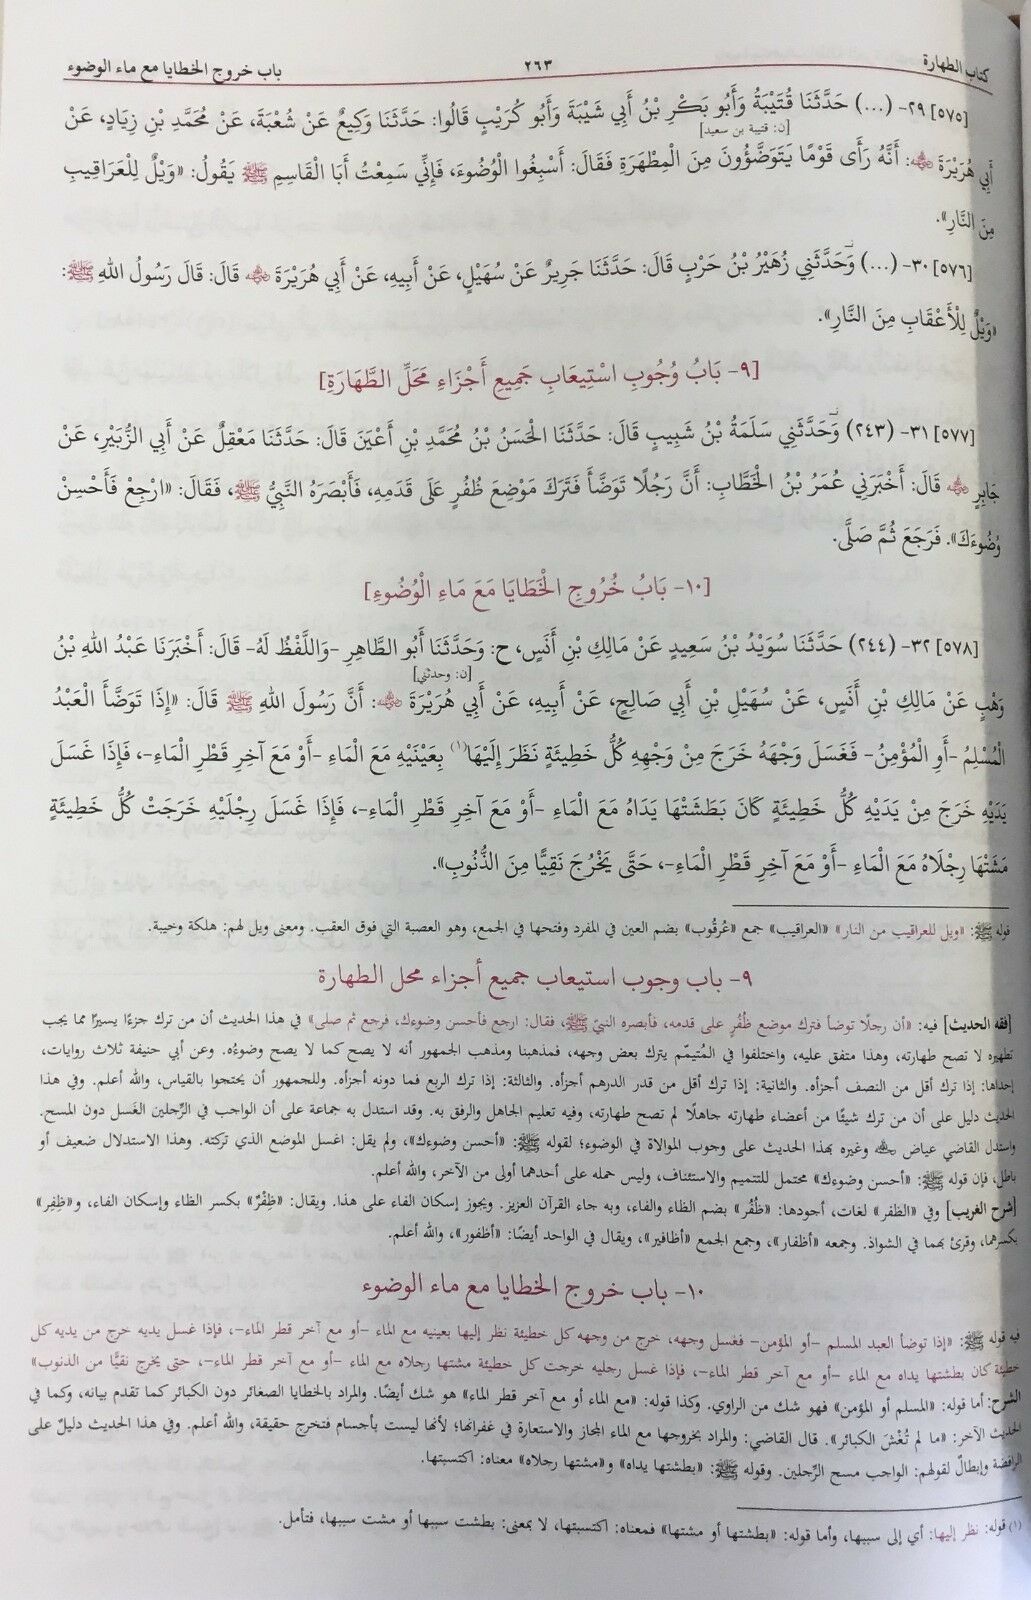 كتاب الطهارة ٢٦٣ باب خروج الخطايا مع ماء الوضوء
[٥٧٥] ٢٩- (...) حَدَّثَنَا قُتَيْبَةُ وَأَبُو بَكْرِ بْنُ أَبِي شَيْبَةَ وَأَبُو كُرَيْبٍ قَالُوا: حَدَّثَنَا وَكِيعٌ عَنْ شُعْبَةَ، عَنْ مُحَمَّدِ بْنِ زِيَادٍ، عَنْ
[ن: قتيبة بن سعيد]
أَبِي هُرَيْرَةَ ﵁: أَنَّهُ رَأَى قَوْمًا يَتَوَضَّؤُونَ مِنَ الْمِطْهَرَةِ فَقَالَ: أَسْبِغُوا الْوُضُوءَ، فَإِنِّي سَمِعْتُ أَبَا الْقَاسِمِ ﷺ يَقُولُ: «وَيْلٌ لِلْعَرَاقِيبِ
مِنَ النَّارِ».
[٥٧٦] ٣٠- (...) وَحَدَّثَنِي زُهَيْرُ بْنُ حَرْبٍ قَالَ: حَدَّثَنَا جَرِيرٌ عَنْ سُهَيْلٍ، عَنْ أَبِيهِ، عَنْ أَبِي هُرَيْرَةَ ﵁ قَالَ: قَالَ رَسُولُ اللهِ ﷺ:
«وَيْلٌ لِلْأَعْقَابِ مِنَ النَّارِ».
[٩- بَابُ وُجُوبِ اسْتِيعَابِ جَمِيعِ أَجْزَاءِ مَحَلِّ الطَّهَارَةِ]
[٥٧٧] ٣١- (٢٤٣) وَحَدَّثَنِي سَلَمَةُ بْنُ شَبِيبٍ قَالَ: حَدَّثَنَا الْحَسَنُ بْنُ مُحَمَّدِ بْنِ أَعْيَنَ قَالَ: حَدَّثَنَا مَعْقِلٌ عَنْ أَبِي الزُّبَيْرِ، عَنْ
جَابِرٍ ﵁ قَالَ: أَخْبَرَنِي عُمَرُ بْنُ الْخَطَّابِ: أَنَّ رَجُلًا تَوَضَّأَ فَتَرَكَ مَوْضِعَ ظُفُرٍ عَلَى قَدَمِهِ، فَأَبْصَرَهُ النَّبِيُّ ﷺ، فَقَالَ: «ارْجِعْ فَأَحْسِنْ
وُضُوءَكَ». فَرَجَعَ ثُمَّ صَلَّى.
[١٠- بَابُ خُرُوجِ الْخَطَايَا مَعَ مَاءِ الْوُضُوءِ]
[٥٧٨] ٣٢- (٢٤٤) حَدَّثَنَا سُوَيْدُ بْنُ سَعِيدٍ عَنْ مَالِكِ بْنِ أَنَسٍ، ح: وَحَدَّثَنَا أَبُو الطَّاهِرِ -وَاللَّفْظُ لَهُ- قَالَ: أَخْبَرَنَا عَبْدُ اللهِ بْنُ
[ن: وحدثني]
وَهْبٍ عَنْ مَالِكِ بْنِ أَنَسٍ، عَنْ سُهَيْلِ بْنِ أَبِي صَالِحٍ، عَنْ أَبِيهِ، عَنْ أَبِي هُرَيْرَةَ ﵁: أَنَّ رَسُولَ اللهِ ﷺ قَالَ: «إِذَا تَوَضَّأَ الْعَبْدُ
الْمُسْلِمُ -أَوِ الْمُؤْمِنُ- فَغَسَلَ وَجْهَهُ خَرَجَ مِنْ وَجْهِهِ كُلُّ خَطِيئَةٍ نَظَرَ إِلَيْهَا(١) بِعَيْنَيْهِ مَعَ الْمَاءِ -أَوْ مَعَ آخِرِ قَطْرِ الْمَاءِ-، فَإِذَا غَسَلَ
يَدَيْهِ خَرَجَ مِنْ يَدَيْهِ كُلُّ خَطِيئَةٍ كَانَ بَطَشَتْهَا يَدَاهُ مَعَ الْمَاءِ -أَوْ مَعَ آخِرِ قَطْرِ الْمَاءِ-، فَإِذَا غَسَلَ رِجْلَيْهِ خَرَجَتْ كُلُّ خَطِيئَةٍ
مَشَتْهَا رِجْلَاهُ مَعَ الْمَاءِ -أَوْ مَعَ آخِرِ قَطْرِ الْمَاءِ-، حَتَّى يَخْرُجَ نَقِيًّا مِنَ الذُّنُوبِ».
قوله ﷺ: «ويل للعراقيب من النار» «العراقيب» جمع «عُرقُوب» بضم العين في المفرد وفتحها في الجمع، وهو العصبة التي فوق العقب. ومعنى ويل لهم: هلكة وخيبة.
٩- باب وجوب استيعاب جميع أجزاء محل الطهارة
[فقه الحديث] فيه: «أن رجلًا توضأ فترك موضع ظُفُرٍ على قدمه، فأبصره النبيّ ﷺ، فقال: ارجع فأحسن وضوءك، فرجع ثم صلى» في هذا الحديث أن من ترك جزءًا يسيرًا مما يجب
تطهيره لا تصح طهارته، وهذا متفق عليه، واختلفوا في المُتيمّم يترك بعض وجهه، فمذهبنا ومذهب الجمهور أنه لا يصح كما لا يصح وضوءُه. وعن أبي حنيفة ثلاث روايات،
إحداها: إذا ترك أقل من النصف أجزأه. والثانية: إذا ترك أقل من قدر الدرهم أجزأه. والثالثة: إذا ترك الربع فما دونه أجزأه. وللجمهور أن يحتجوا بالقياس، والله أعلم. وفي هذا
الحديث دليل على أن من ترك شيئًا من أعضاء طهارته جاهلًا لم تصح طهارته، وفيه تعليم الجاهل والرفق به. وقد استدل به جماعة على أن الواجب في الرِّجلين الغَسل دون المسح.
واستدل القاضي عياض ﵀ وغيره بهذا الحديث على وجوب الموالاة في الوضوء؛ لقوله ﷺ: «أحسن وضوءك»، ولم يقل: اغسل الموضع الذي تركته. وهذا الاستدلال ضعيف أو
باطل، فإن قوله ﷺ: «أحسن وضوءك» محتمل للتتميم والاستئناف، وليس حمله على أحدهما أولى من الآخر، والله أعلم.
[شرح الغريب] وفي «الظفر» لغات، أجودها: «ظُفُر» بضم الظاء والفاء، وبه جاء القرآن العزيز. ويجوز إسكان الفاء على هذا. ويقال: «ظِفْرٌ» بكسر الظاء وإسكان الفاء، و«ظِفِر»
بكسرهما، وقرئ بهما في الشواذ. وجمعه «أظفار»، وجمع الجمع «أظافير»، ويقال في الواحد أيضًا: «أظفور»، والله أعلم.
١٠- باب خروج الخطايا مع ماء الوضوء
فيه قوله ﷺ: «إذا توضأ العبد المسلم -أو المؤمن- فغسل وجهه، خرج من وجهه كل خطيئة نظر إليها بعينيه مع الماء -أو مع آخر قطر الماء-، فإذا غسل يديه خرج من يديه كل
خطيئة كان بطشتها يداه مع الماء -أو مع آخر قطر الماء-، فإذا غسل رجليه خرجت كل خطيئة مشتها رجلاه مع الماء -أو مع آخر قطر الماء-، حتى يخرج نقيًّا من الذنوب»
الشرح: أما قوله: «المسلم أو المؤمن» فهو شك من الراوي. وكذا قوله: «مع الماء أو مع آخر قطر الماء» هو شك أيضًا. والمراد بالخطايا الصغائر دون الكبائر كما تقدم بيانه، وكما في
الحديث الآخر: «ما لم تُغْشَ الكبائر». قال القاضي: والمراد بخروجها مع الماء المجاز والاستعارة في غفرانها؛ لأنها ليست بأجسام فتخرج حقيقة، والله أعلم. وفي هذا الحديث دليلٌ على
الرافضة وإبطالٌ لقولهم: الواجب مسح الرِّجلين. وقوله ﷺ: «بطشتها يداه» و«مشتها رجلاه» معناه: اكتسبتها.
(١) قوله: نظر إليها: أي إلى سببها، وأما قوله: «بطشتها أو مشتها» فمعناه: اكتسبتها، لا بمعنى: بطشت سببها أو مشت سببها، فتأمل.